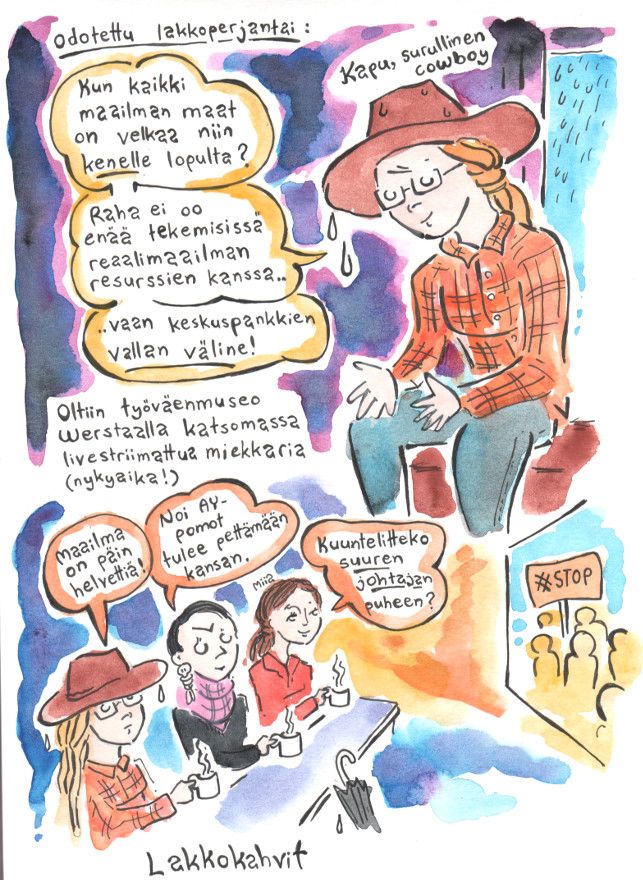 odotettu lakkoperjantai:
Kun kaikki
maailman maat
on velkaa niin
kenelle lopulta?
Kapu, surullinen
cowboy
Raha ei oo
enää tekemisissä
reaalimaailman
resurssien kanssa..
..vaan keskuspankkien
vallan väline!
Oltiin työväenmuseo
Werstaalla katsomassa
livestriimattua miekkaria
(nykyaika!)
Maailma
on päin
helvettiä!
Noi AY-
pomot
tulee pettämään
kansan.
Miia
Kuuntelitteko
suuren
johtajan
puheen?
#STOP
Lakkokahvit